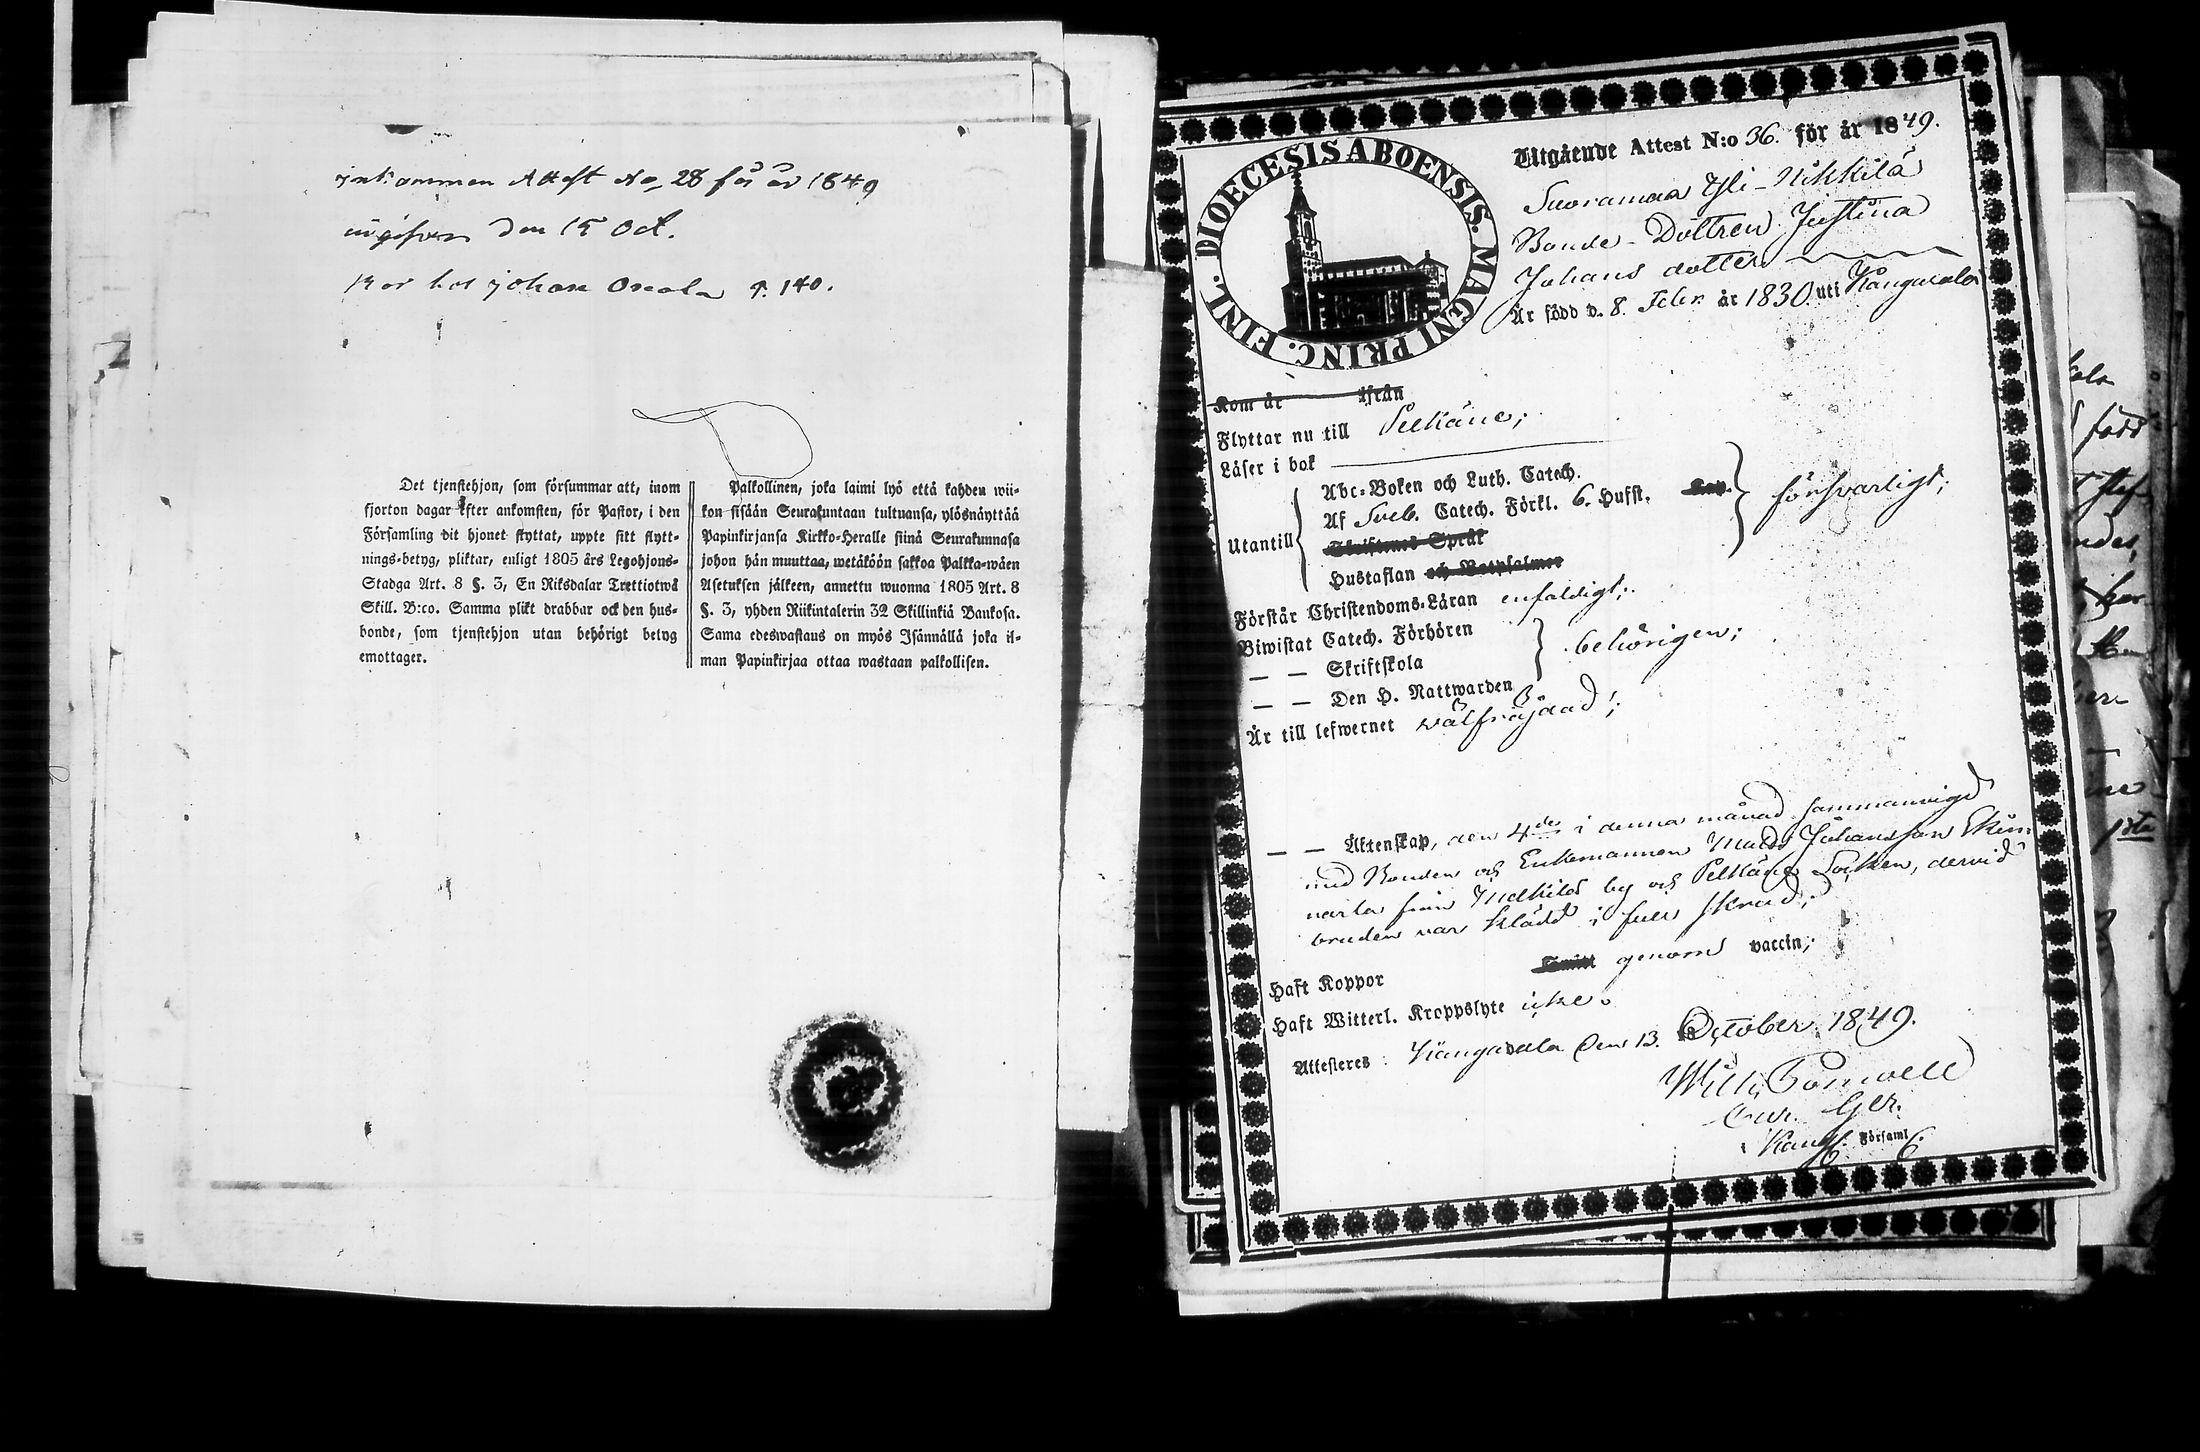 inkommen Attest No 28 för år 1849
ingifven den 15 Oct.
Bor hos Johan Onala p. 140.
Det tjenstehjon, som försummar att, inom
fjorton dagar efter ankomsten, för Pastor, i den
Församling dit hjonet flyttat, uppte sitt flytt-
nings-betyg, pliktar, enligt 1805 års Legohjons-
Stadga Art. 8 §. 3, En Riksdalar Trettiotwå
Skill. B:co. Samma plikt drabbar ock den hus-
bonde, som tjenstehjon utan behörigt betyg
emottager.
Palkollinen, joka laimi lyö että kahden wii-
kon sisään Seurakuntaan tultuansa, ylösnäyttää
Papinkirjansa Kirkko-Heralle siinä Seurakunnasa
johon hän muuttaa, wetäköön sakkoa Palkka-wäen
Asetuksen jälkeen, annettu wuonna 1805 Art. 8
§. 3, yhden Riikintalerin 32 Skillinkiä Bankosa.
Sama edeswastaus on myös Isännällä joka il-
man Papinkirjaa ottaa wastaan palkollisen.
DIOECESIS ABOENSIS. MAGNI PRINC. FINL.
Utgående Attest N:o 36. för år 1849.
Suoramaa Yli-Nikkilä
Bonde-Dottren Justina
Johans dotter
Är född d. 8. Febr. år 1830. uti Kangasala
Kom år ifrån
Flyttar nu till Pelkäne;
Läser i bok
Utantill
Abc-Boken och Luth. Catech.
Af Sveb. Catech. Förkl. 6. Hufst. Cap. försvarligt;
Skriftenes Språk
Hustaflan och Botpsalmer
Förstår Christendoms-Läran enfaldigt;
Biwistat Catech. Förhören
— — Skriftskola behörigen;
— — Den H. Nattwarden
Är till lefwernet välfräjdad;
— — Äktenskap, den 4de i denna månad sammanvigd
med Bonden och Enkemannen Matts Johansson
från by och Pelkäne Socken, dervid
bruden var klädd i full skrud;
Haft Koppor genom vaccin;
Haft Witterl. Kroppslyte icke.
Attesteras: Kangasala den 13. October 1849.
Församl